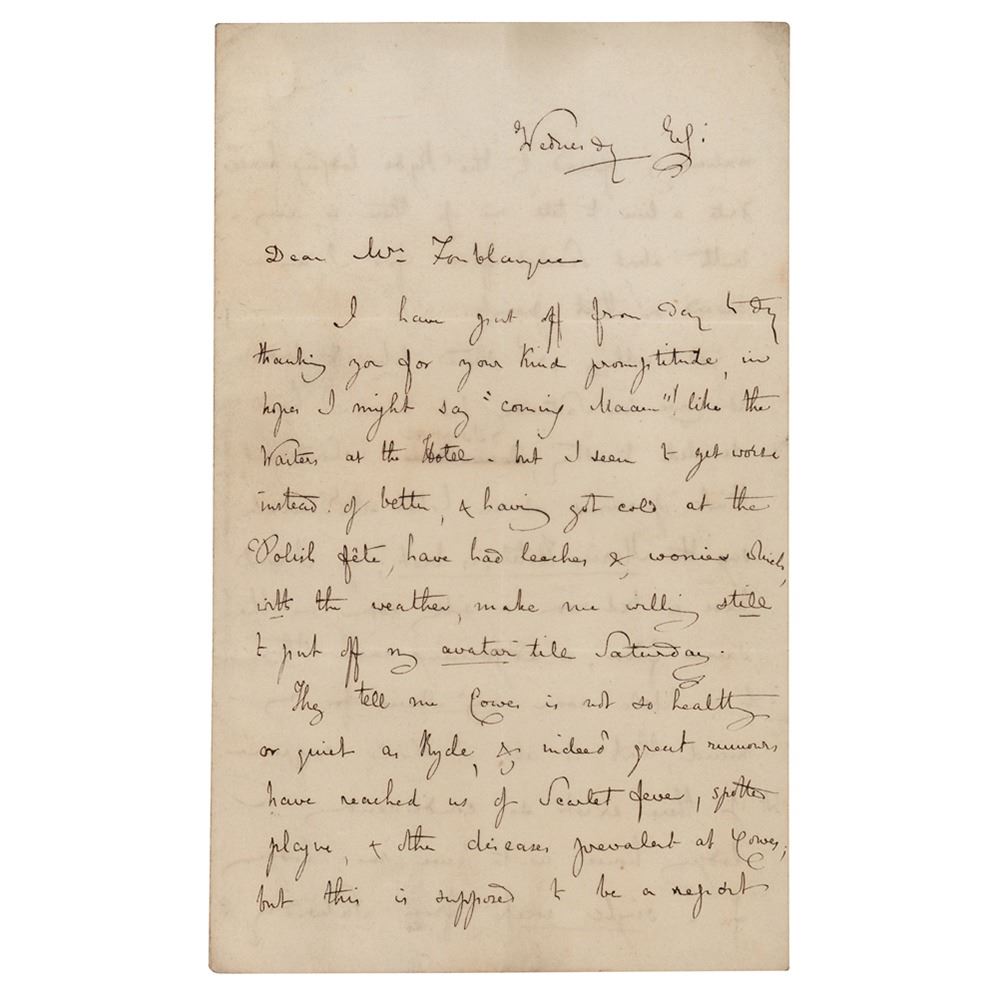 Wednesdy
Dear Mr Fonblanque
I have put off from day to dy
thanking you for your kind promptitude, in
hopes I might say "coming Maam"! like the
Waiters at the Hotel - but I seem to get worse
instead of better, & having got cold at the
Polish fête, have had leeches & worries which,
with the weather, make me willing still
to put off my avatar till Saturday.
They tell me Cowes is not so healthy
or quiet as Ryde, & indeed great rumours
have reached us of Scarlet fever, spotted
plague, & other diseases prevalent at Cowes,
but this is supposed to be a report